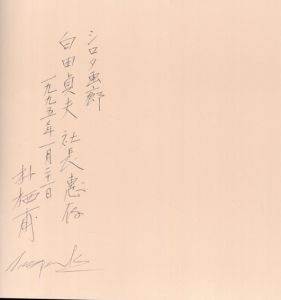 シロタ画廊
白田貞夫 社長 惠存
一九九五年一月二十一日
朴栖甫